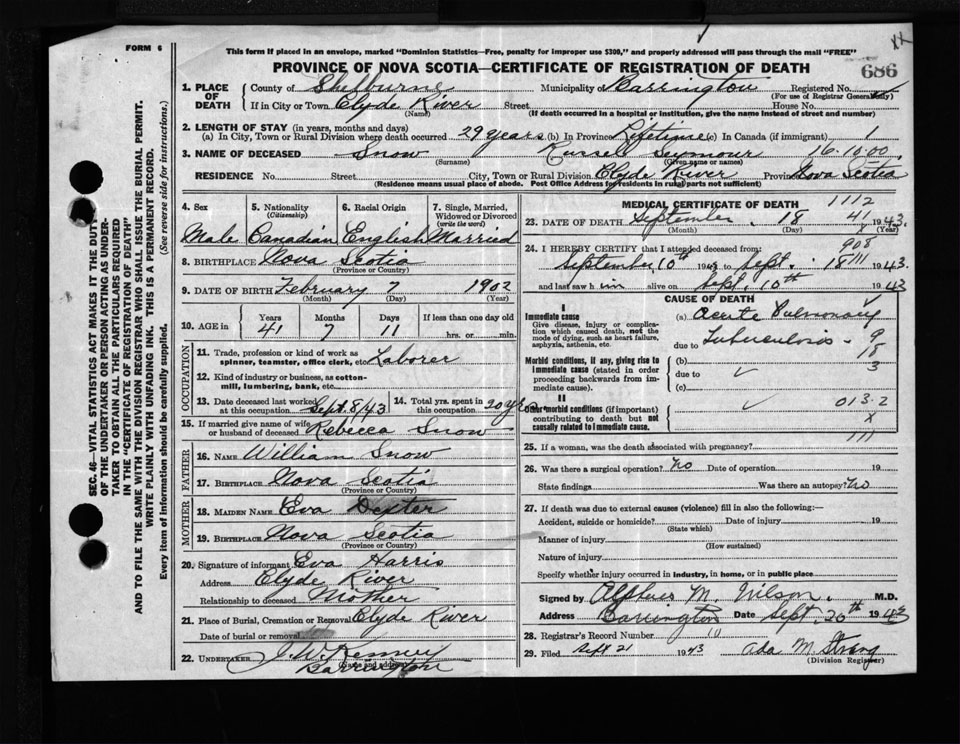 FORM 6
This form if placed in an envelope, marked "Dominion Statistics—Free, penalty for improper use $300," and properly addressed will pass through the mail "FREE"
686
PROVINCE OF NOVA SCOTIA—CERTIFICATE OF REGISTRATION OF DEATH
SEC. 46—VITAL STATISTICS ACT MAKES IT THE DUTY
OF THE UNDERTAKER OR PERSON ACTING AS UNDER-
TAKER TO OBTAIN ALL THE PARTICULARS REQUIRED
IN THE "CERTIFICATE OF REGISTRATION OF DEATH"
AND TO FILE THE SAME WITH THE DIVISION REGISTRAR WHO SHALL ISSUE THE BURIAL PERMIT.
WRITE PLAINLY WITH UNFADING INK. THIS IS A PERMANENT RECORD.
Every item of information should be carefully supplied. (See reverse side for instructions.)
1. PLACE OF DEATH County of Shelburne Municipality of Barrington Registered No.
(For use of Registrar General only)
If in City or Town Clyde River Street House No.
(Name) (If death occurred in a hospital or institution, give the name instead of street and number)
2. LENGTH OF STAY (in years, months and days)
(a) In City, Town or Rural Division where death occurred 29 years (b) In Province Lifetime (c) In Canada (if immigrant) 1
3. NAME OF DECEASED Snow Russell Seymour 16-10-00
(Surname) (Given name or names)
RESIDENCE No. Street City, Town or Rural Division Clyde River Province Nova Scotia
(Residence means usual place of abode. Post Office Address for residents in rural parts not sufficient)
4. Sex 5. Nationality (Citizenship) 6. Racial Origin 7. Single, Married, Widowed or Divorced (write the word)
Male Canadian English Married
8. BIRTHPLACE Nova Scotia
(Province or Country)
9. DATE OF BIRTH February 7 1902
(Month) (Day) (Year)
10. AGE in Years Months Days If less than one day old
41 7 11 hrs. or min.
OCCUPATION
11. Trade, profession or kind of work as spinner, teamster, office clerk, etc. Laborer
12. Kind of industry or business, as cotton-mill, lumbering, bank, etc.
13. Date deceased last worked at this occupation Sept. 8/43 14. Total yrs. spent in this occupation 20 yrs
15. If married give name of wife or husband of deceased Rebecca Snow
FATHER
16. NAME William Snow
17. BIRTHPLACE Nova Scotia
(Province or Country)
MOTHER
18. MAIDEN NAME Eva Dexter
19. BIRTHPLACE Nova Scotia
(Province or Country)
20. Signature of informant Eva Harris
Address Clyde River
Relationship to deceased Mother
21. Place of Burial, Cremation or Removal Clyde River
Date of burial or removal
22. UNDERTAKER J. W. Kenney
(Name and address)
Barrington
MEDICAL CERTIFICATE OF DEATH 1112
23. DATE OF DEATH September 18 41 1943.
(Month) (Day) x
908
24. I HEREBY CERTIFY that I attended deceased from:
September 10th 1943 to Sept. 18 111 1943.
and last saw him alive on Sept. 10th 1943
CAUSE OF DEATH
I
Immediate cause
Give disease, injury or complication which caused death, not the mode of dying, such as heart failure, asphyxia, asthenia, etc.
(a) Acute Pulmonary
due to Tuberculosis - 9
18
3
Morbid conditions, if any, giving rise to immediate cause (stated in order proceeding backwards from immediate cause).
(b)
due to
(c)
II
Other morbid conditions (if important) contributing to death but not causally related to immediate cause.
013.2
x
111
25. If a woman, was the death associated with pregnancy?
26. Was there a surgical operation? no Date of operation 19
State findings Was there an autopsy? no
27. If death was due to external causes (violence) fill in also the following:—
Accident, suicide or homicide? Date of injury 19
(State which)
Manner of injury
(How sustained)
Nature of injury
Specify whether injury occurred in industry, in home, or in public place
Signed by M. Wilson. M.D.
Address Barrington Date Sept. 20th 1943
28. Registrar's Record Number 10
29. Filed Sept 21 1943 Ada M. Strang
(Division Registrar)